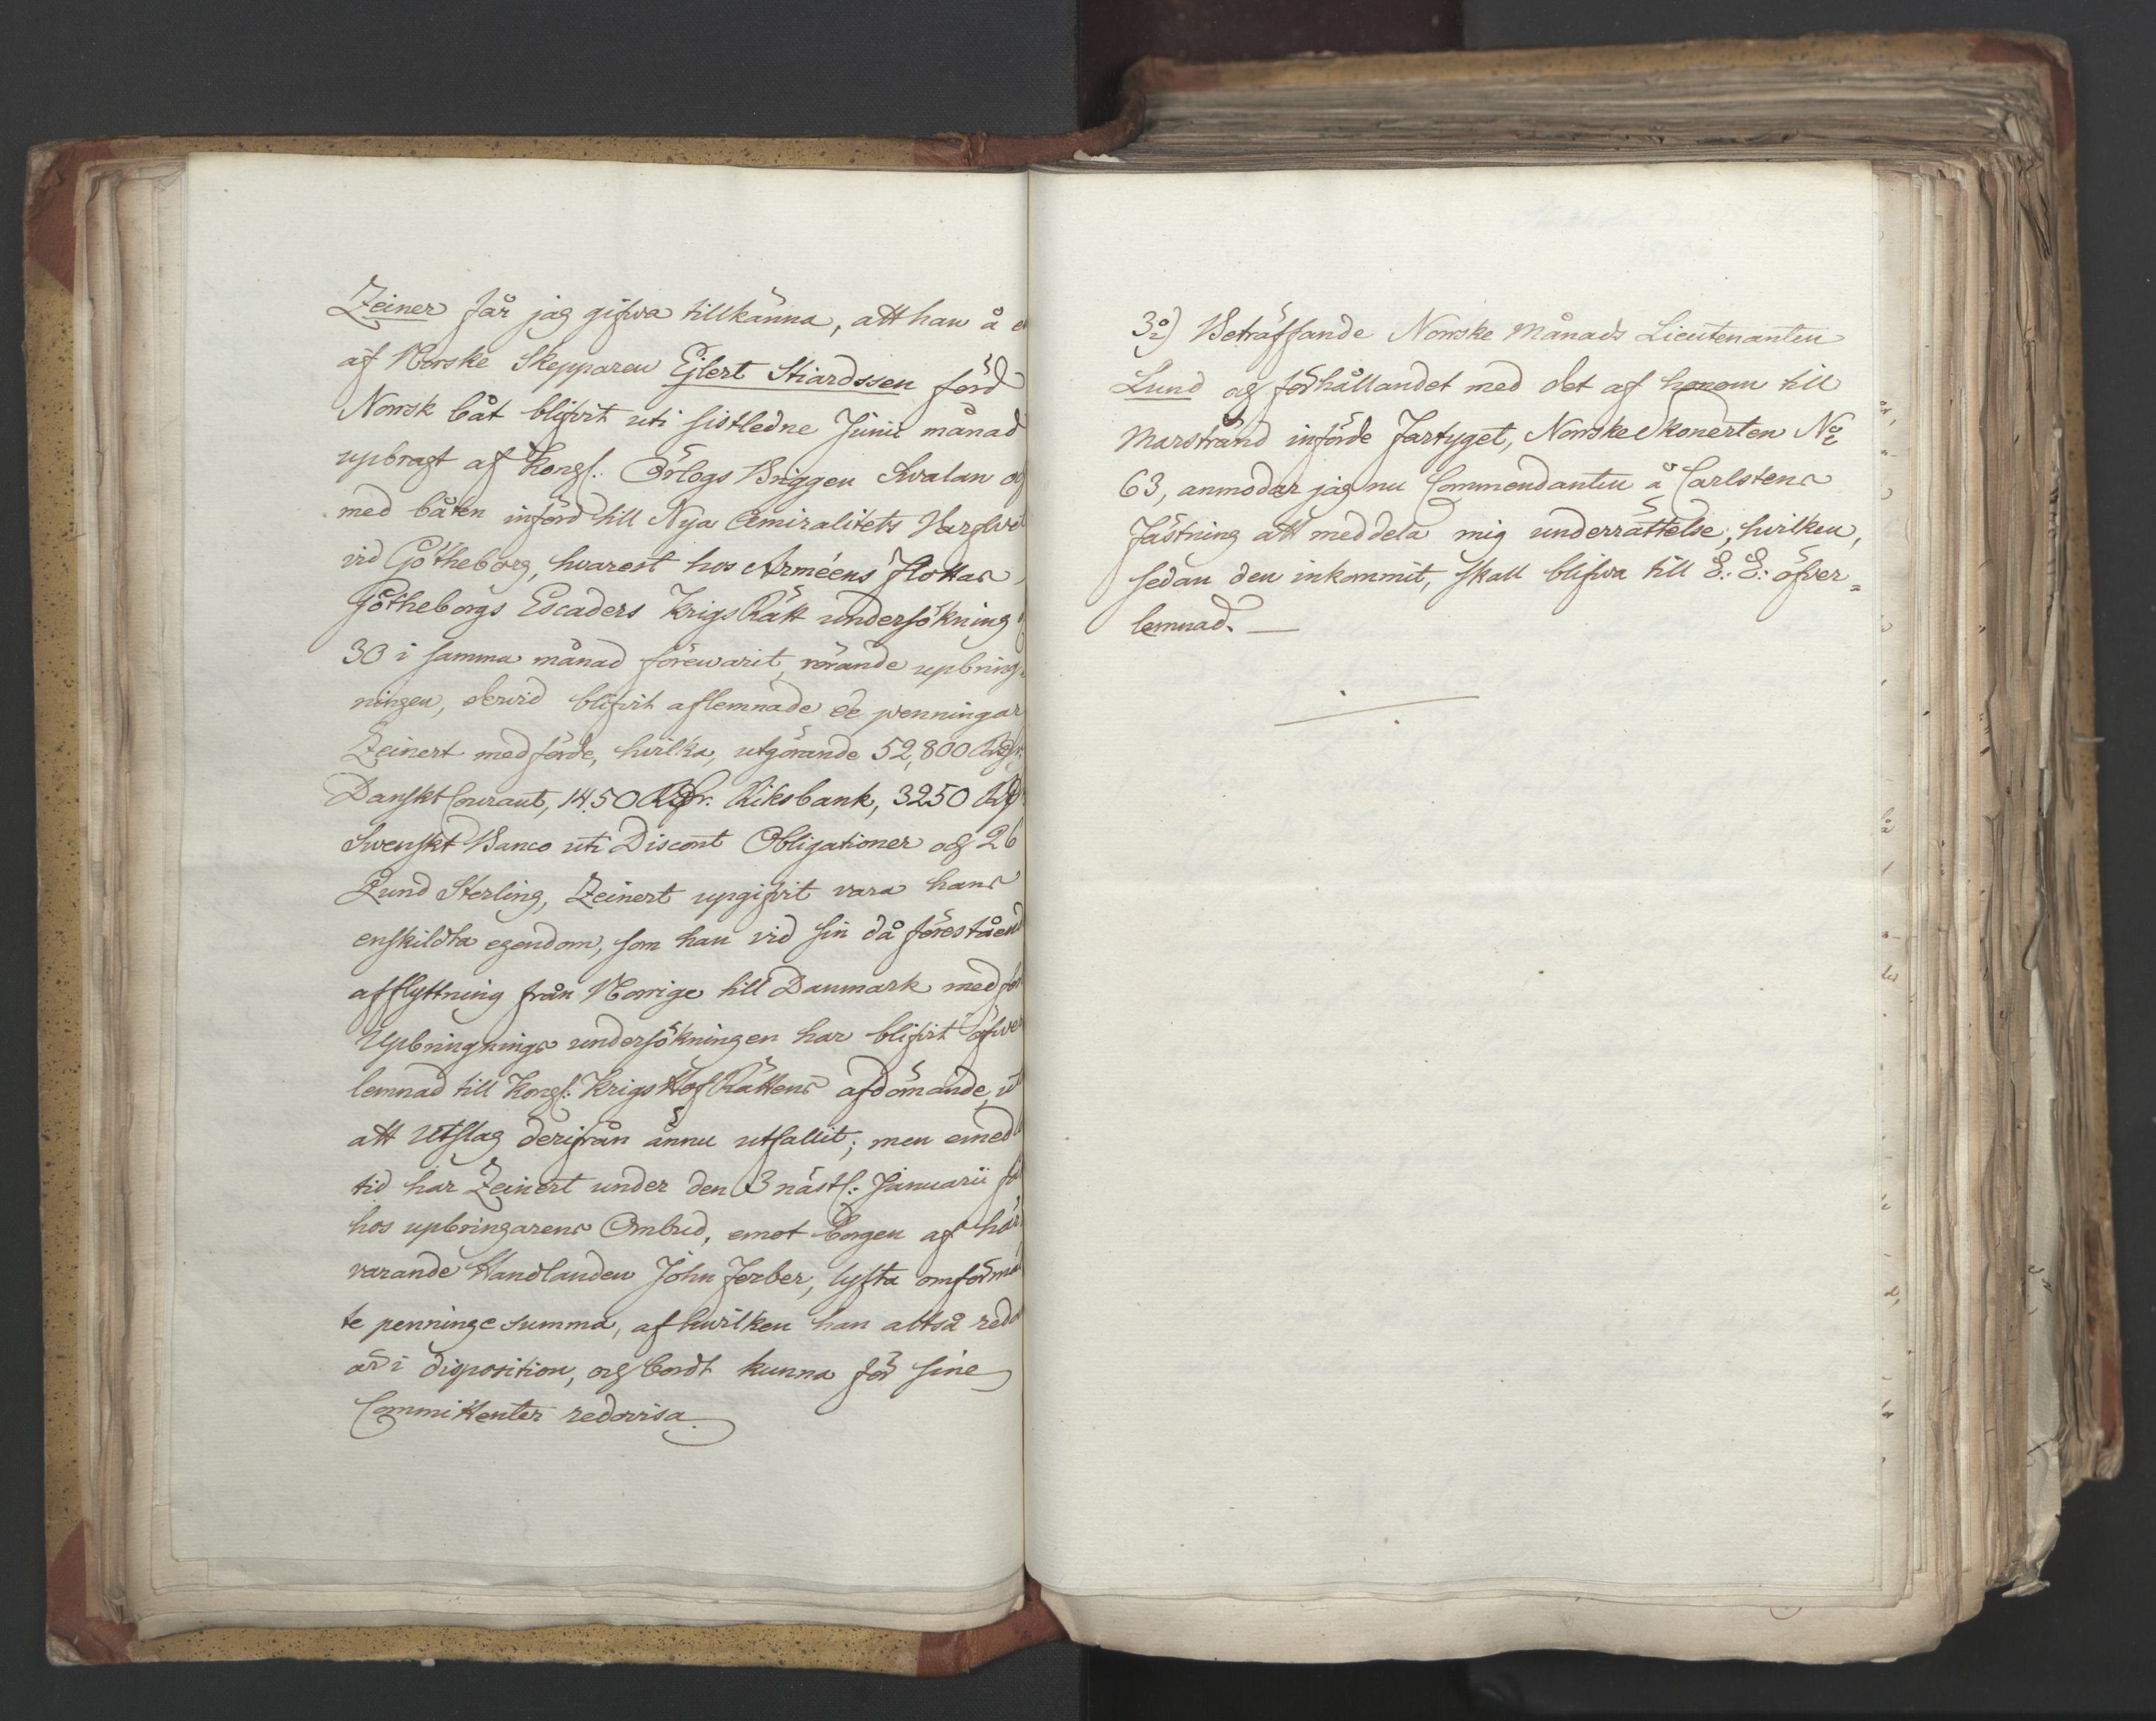 Zeiner får jag gifwa tillkänna, att han å e
af Norske Skepparen Ejlert Stiardssen förd
Norsk båt blifvit uti sistledne Junii månad
upbragt af Kongl: Örlogs Briggen Svalan og
med båten införd till Nya Amiralitets Varfwet
vid Götheborg, hvarest hos Arméens Flottas
Götheborgs Escaders KrigsRätt undersökning
30 i samma månad förewarit, rörande upbring
ningen, dervid blifvit aflemnade de penningar
Zeinert medförde, hvilka, utgörande 52,800 Rdr
Danskt Courant, 1450 Rdr. Riksbank, 3250 Rd
Swenskt Banco uti Discont Obligationer og 26
Pund Sterling, Zeinert upgifvit vara hans
enskildta egendom, som han vid sin då förestående
afflyttning från Norrige till Danmark medför
Upbringnings undersökningen har blifvit öfwer
lemnad till Kongl: KrigsHofRättens afdömande, ut
att Utslag derifrån ännu utfallit; men emedl
tid har Zeinert under den 3 nästl: Januarii få
hos upbringarens Ombud, emot borgen af här
varande Handlanden John Ferber, lyfta omförmä
te penninge summa, af hwilken han altså reda
är i disposition, og bordt kunna för sine
Committenter redovisa.
3o) Beträffande Norske Månads Lieutenanten
Lund og förhållandet med det af honom till
Marstrand införde Fartyget, Norske Skonerten No
63, anmodar jag nu Commendanten å Carlstens
Fästning att meddela mig underrättelse, hvilken,
sedan den inkommit, skall blifwa till E: E: öfver=
lemnad. —